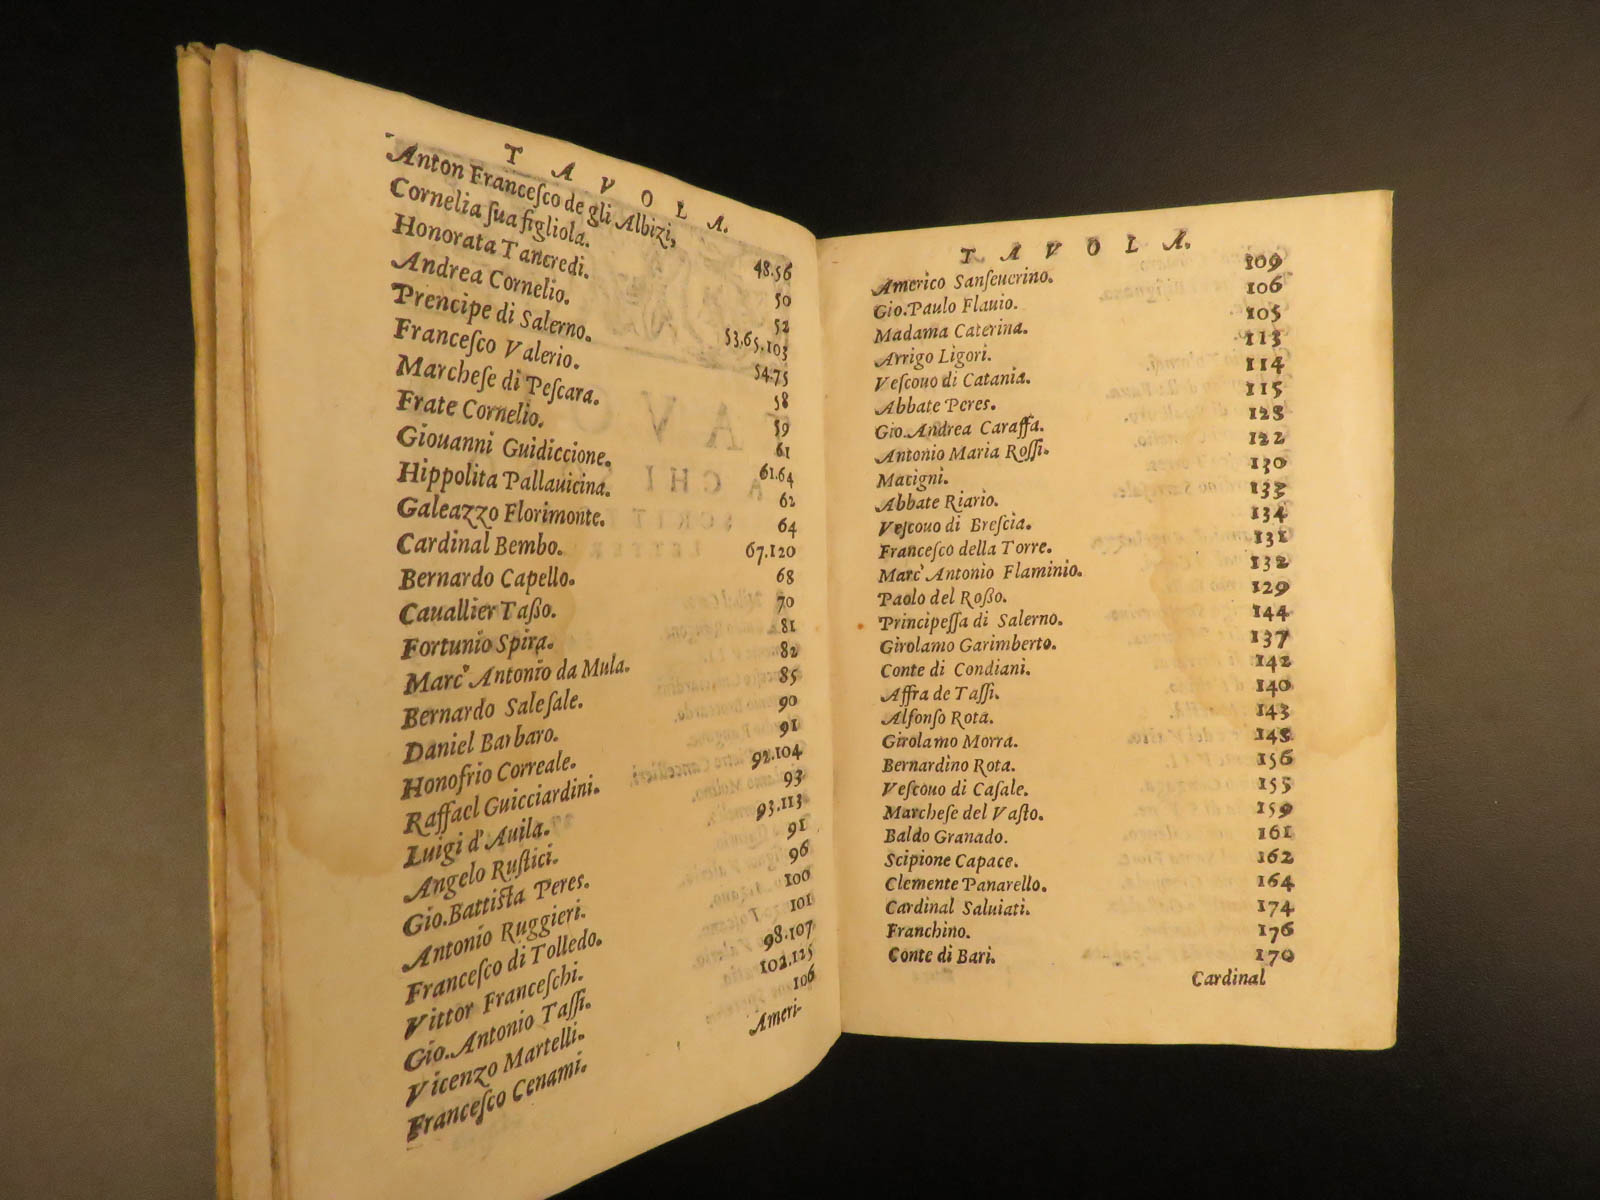 T A V O L A.
Anton Franceſco de gli Albizi, 48.56
Cornelia ſua figliola. 50
Honorata Tancredi. 52
Andrea Cornelio. 53.65.103
Prencipe di Salerno. 54.75
Franceſco Valerio. 58
Marcheſe di Peſcara. 59
Frate Cornelio. 61
Giouanni Guidiccione. 61.64
Hippolita Pallauicina. 62
Galeazzo Florimonte. 64
Cardinal Bembo. 67.120
Bernardo Capello. 68
Cauallier Taßo. 70
Fortunio Spira. 81
Marc' Antonio da Mula. 82
Bernardo Saleſale. 85
Daniel Barbaro. 90
Honofrio Correale. 91
Raffael Guicciardini. 92.104
Luigi d'Auila. 93
Angelo Ruſtici. 93.113
Gio.Battiſta Peres. 91
Antonio Ruggieri. 96
Franceſco di Tolledo. 100
Vittor Franceſchi. 101
Gio. Antonio Taſſi. 98.107
Vicenzo Martelli. 102.125
Franceſco Cenami. 106
Ameri-
T A V O L A.
Americo Sanſeuerino. 109
Gio.Paulo Flauio. 106
Madama Caterina. 105
Arrigo Ligori. 113
Veſcouo di Catania. 114
Abbate Peres. 115
Gio.Andrea Caraffa. 123
Antonio Maria Roſſi. 122
Macigni. 130
Abbate Riario. 133
Veſcouo di Breſcia. 134
Franceſco della Torre. 131
Marc' Antonio Flaminio. 132
Paolo del Roßo. 129
Principeſſa di Salerno. 144
Girolamo Garimberto. 137
Conte di Condiani. 142
Affra de Taſſi. 140
Alfonſo Rota. 143
Girolamo Morra. 145
Bernardino Rota. 156
Veſcouo di Caſale. 155
Marcheſe del Vaſto. 159
Baldo Granado. 161
Scipione Capace. 162
Clemente Panarello. 164
Cardinal Saluiati. 174
Franchino. 176
Conte di Bari. 170
Cardinal